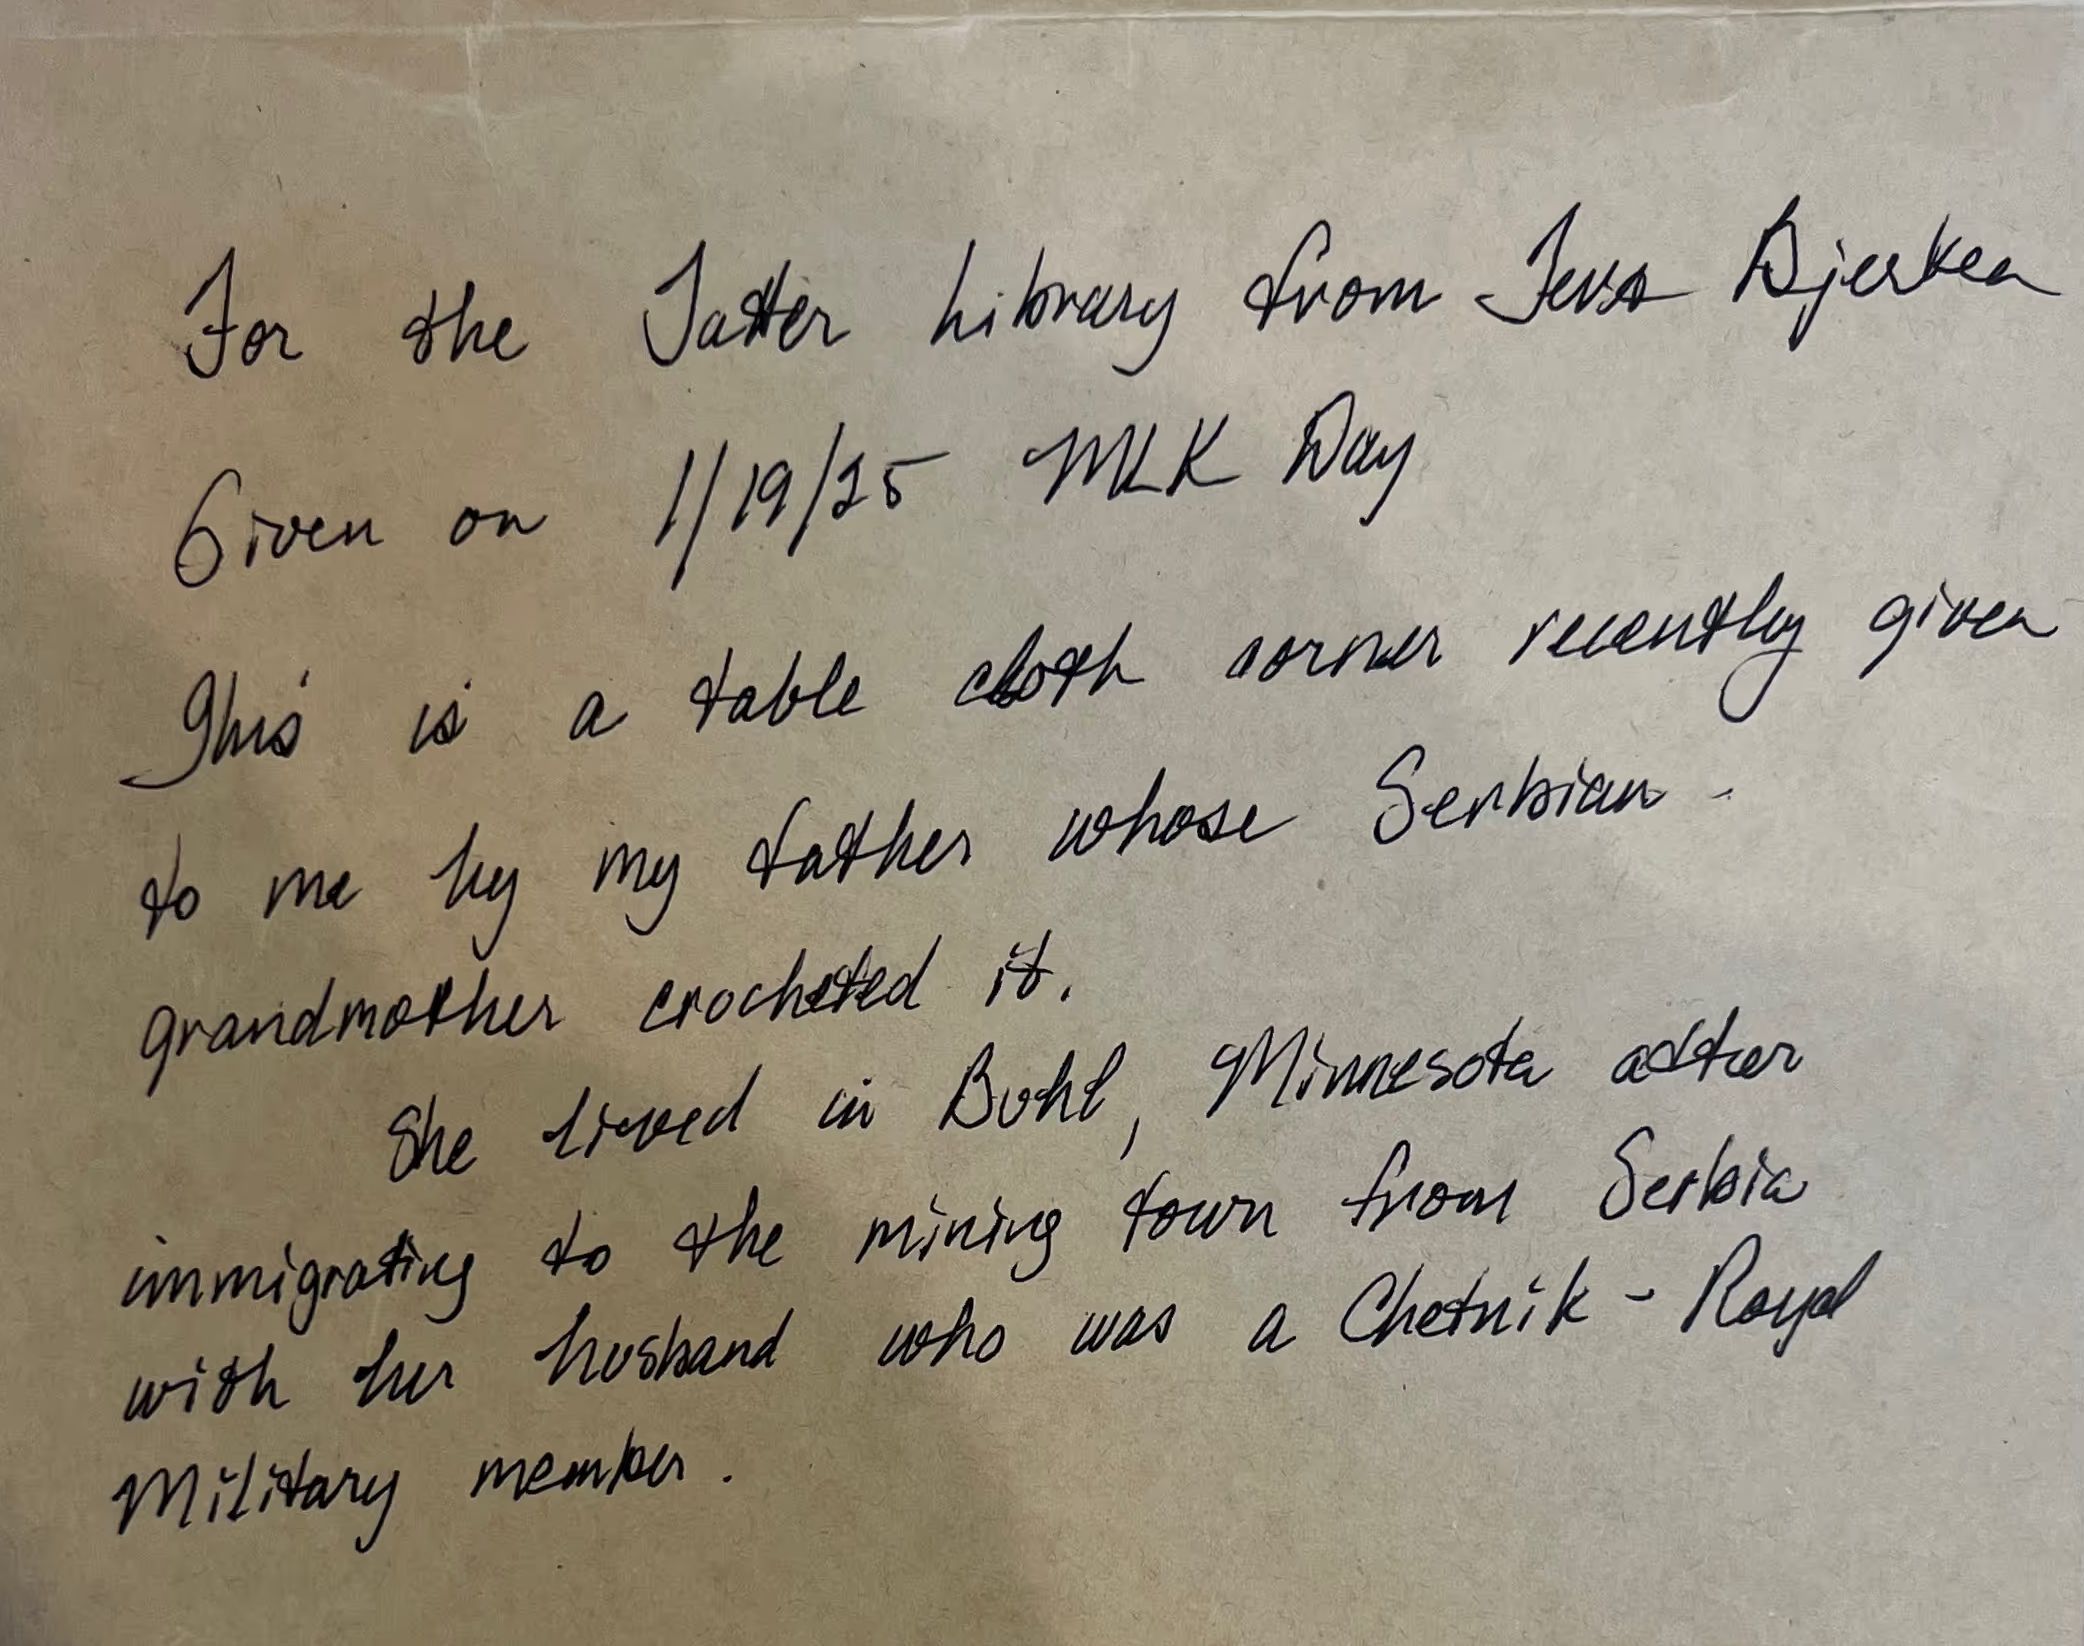 For the Tatter Library from Jeva Bjerken
Given on 1/19/25 MLK Day
This is a table cloth corner recently given
to me by my father whose Serbian -
grandmother crocheted it.
She lived in Buhl, Minnesota after
immigrating to the mining town from Serbia
with her husband who was a Chetnik - Royal
Military member.